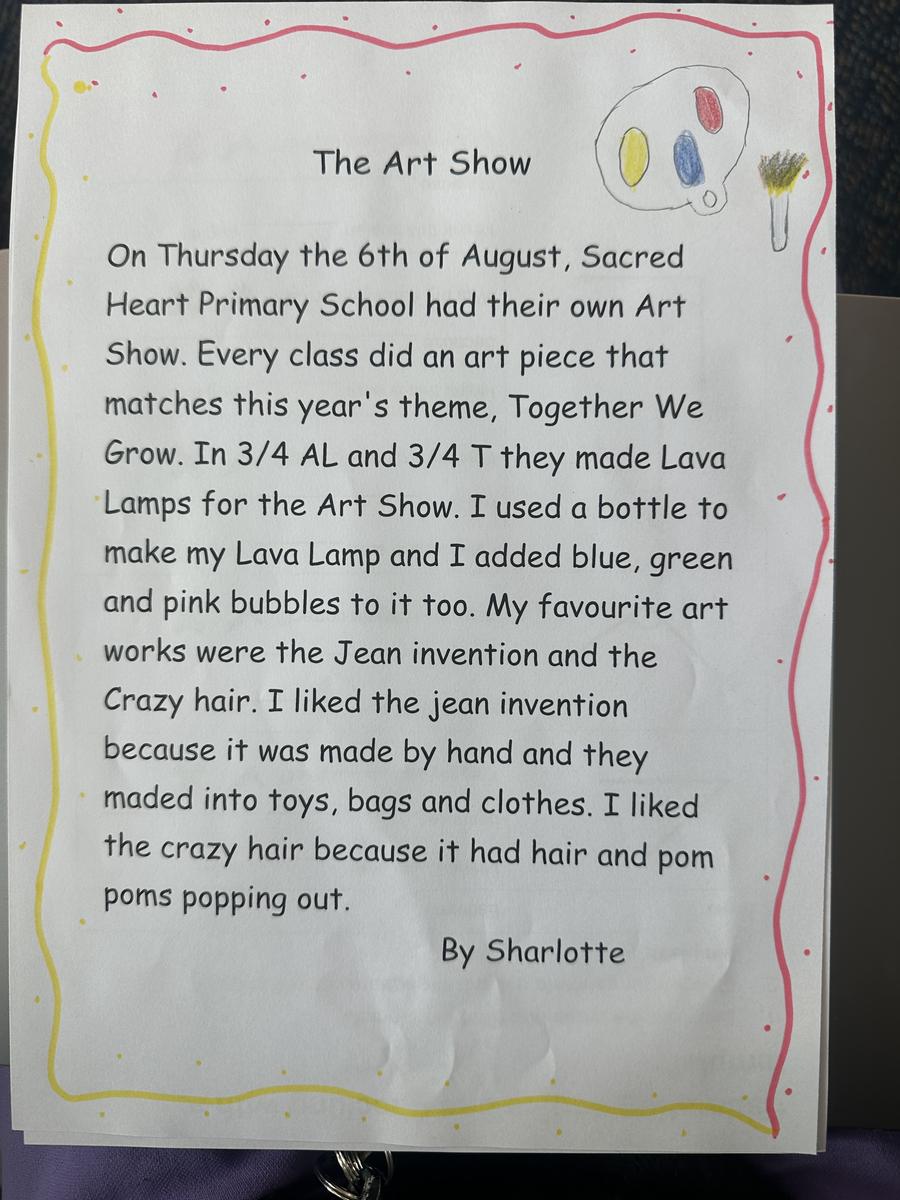 The Art Show
On Thursday the 6th of August, Sacred
Heart Primary School had their own Art
Show. Every class did an art piece that
matches this year's theme, Together We
Grow. In 3/4 AL and 3/4 T they made Lava
Lamps for the Art Show. I used a bottle to
make my Lava Lamp and I added blue, green
and pink bubbles to it too. My favourite art
works were the Jean invention and the
Crazy hair. I liked the jean invention
because it was made by hand and they
maded into toys, bags and clothes. I liked
the crazy hair because it had hair and pom
poms popping out.
By Sharlotte